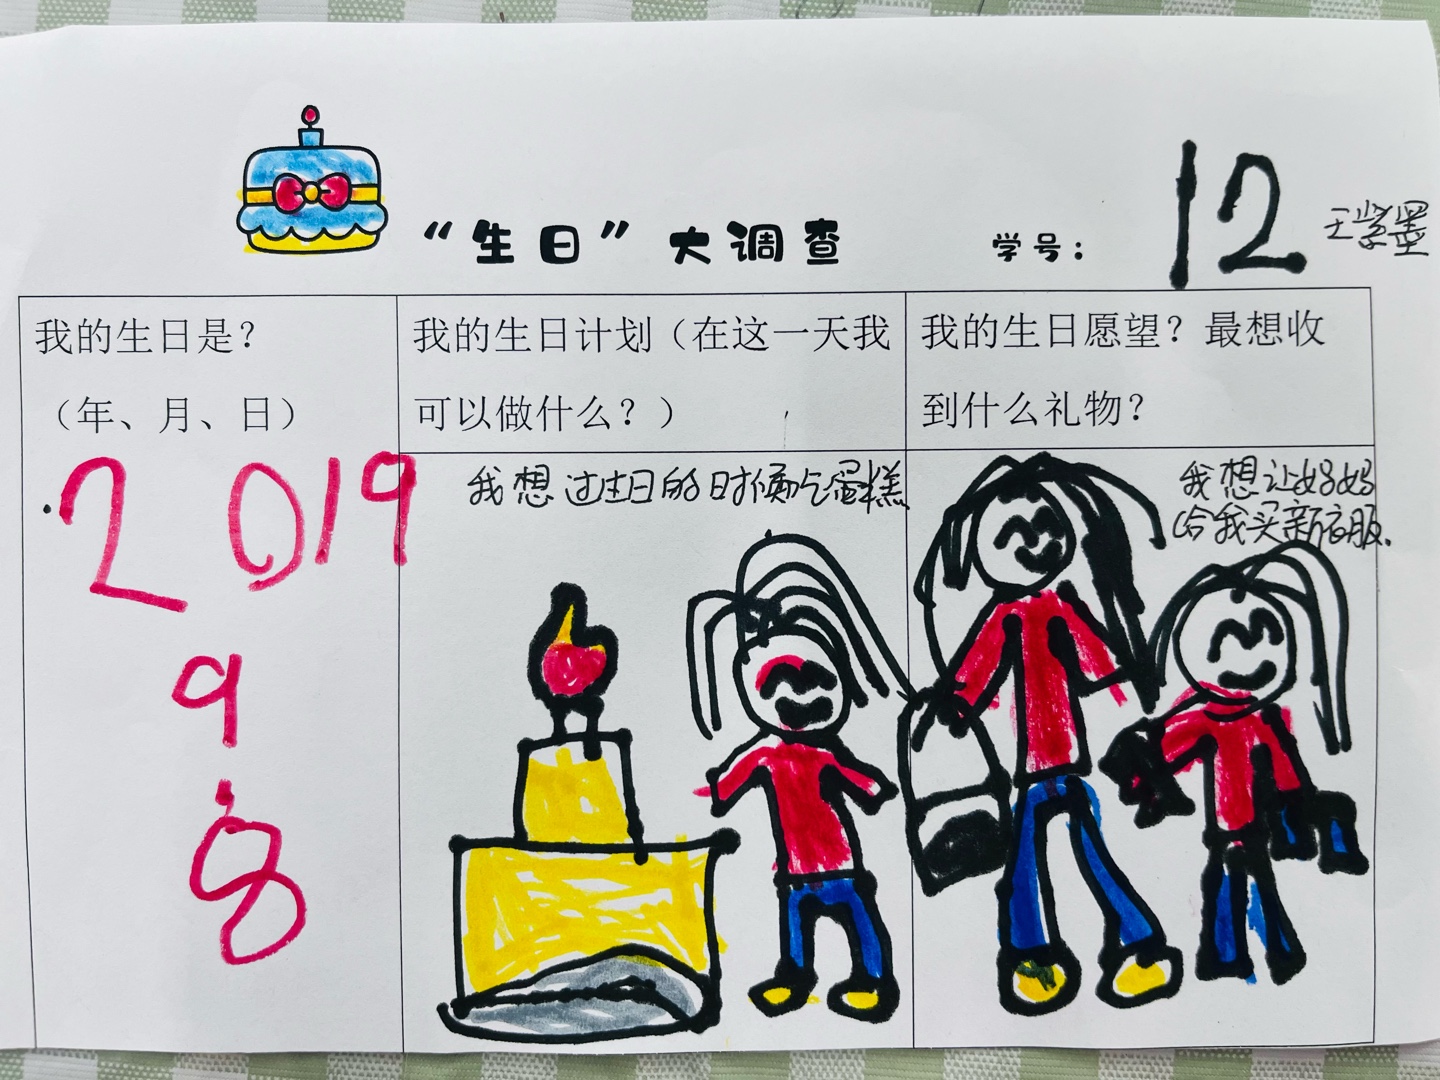 “生日”大调查
学号：12 王紫墨
我的生日是？
（年、月、日）
2019
9
8
我的生日计划（在这一天我
可以做什么？）
我想过生日的时候吃蛋糕
我的生日愿望？最想收
到什么礼物？
我想让妈妈
给我买新衣服.